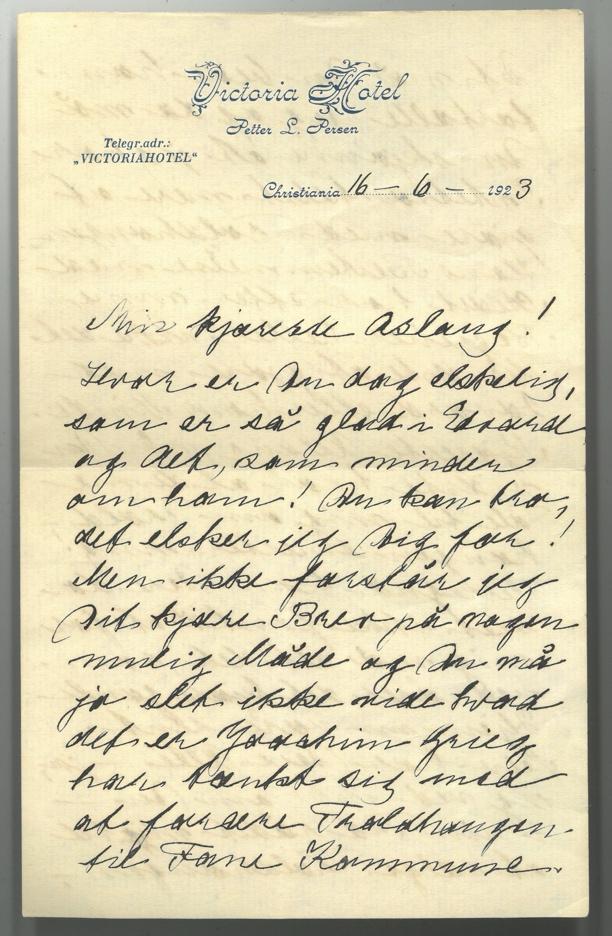 Victoria Hotel
Petter L. Persen
Telegr.adr.:
„VICTORIAHOTEL“
Christiania 16 – 6 – 1923
Min kjæreste Aslaug!
Hvor er Du dog elskelig,
som er så glad i Edvard
og det, som minder
om ham! Du kan tro,
det elsker jeg Dig for!
Men ikke forstår jeg
Dit kjære Brev på nogen
mulig Måde og Du må
jo slet ikke vide hvad
det er Joachim Grieg
har tænkt sig med
at forære Troldhaugen
til Fane Kommune.